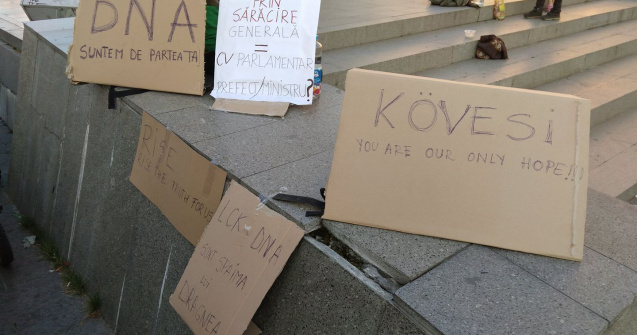 DNA
SUNTEM DE PARTEA TA
PRIN
SĂRĂCIRE
GENERALĂ
=
CV PARLAMENTAR
PREFECT/MINISTRU?
KÖVESI
YOU ARE OUR ONLY HOPE!!!
RISE
THE TRUTH FOR US
LCK-DNA
SUNT SPAIMA
LUI
DRAGNEA